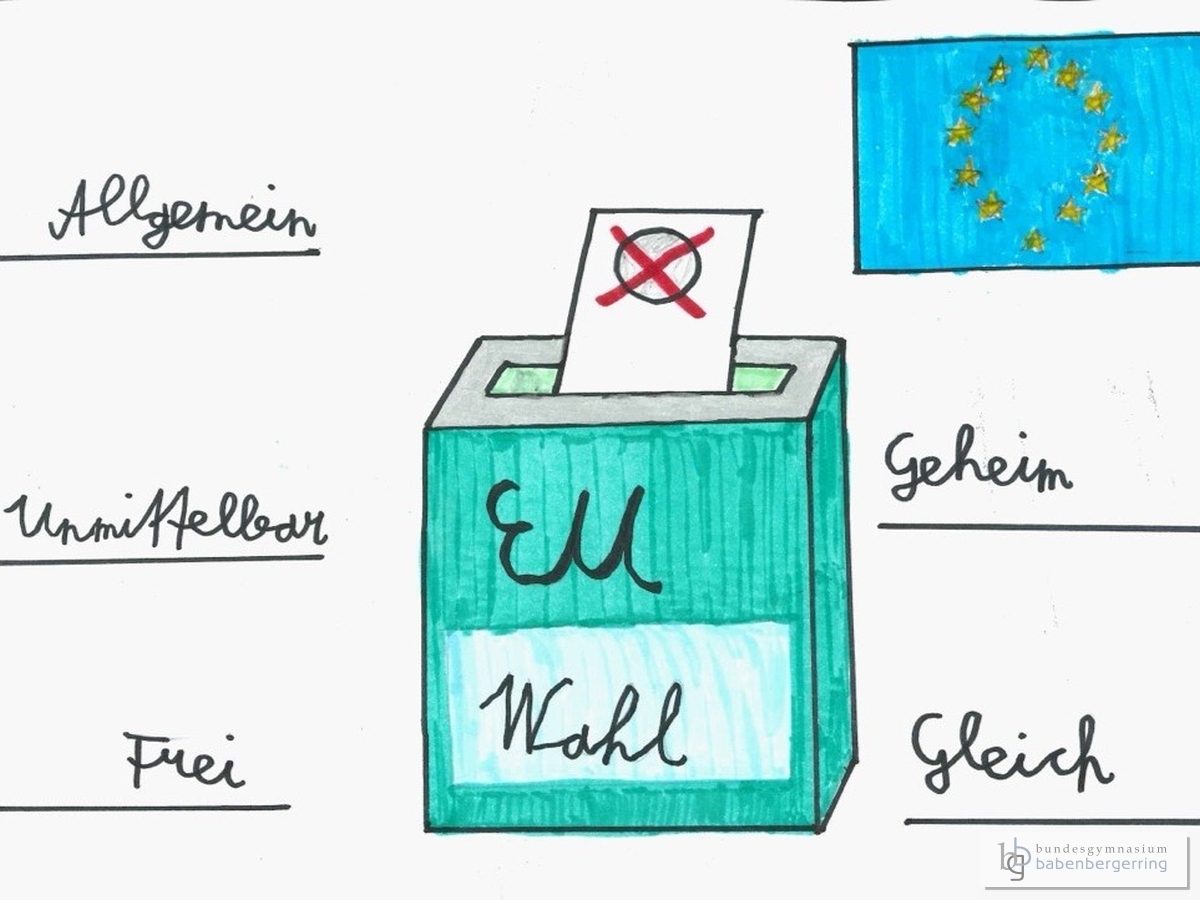 Allgemein
Unmittelbar
Frei
EU
Wahl
Geheim
Gleich
bundesgymnasium
babenbergerring